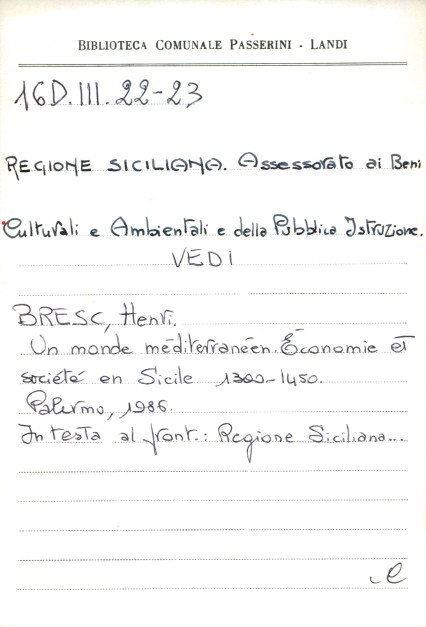 BIBLIOTECA COMUNALE PASSERINI - LANDI
16D.III.22-23
REGIONE SICILIANA. Assessorato ai Beni
Culturali e Ambientali e della Pubblica Istruzione.
VEDI
BRESC, Henri.
Un monde méditerranéen. Économie et
société en Sicile 1300-1450.
Palermo, 1986.
In testa al front.: Regione Siciliana...